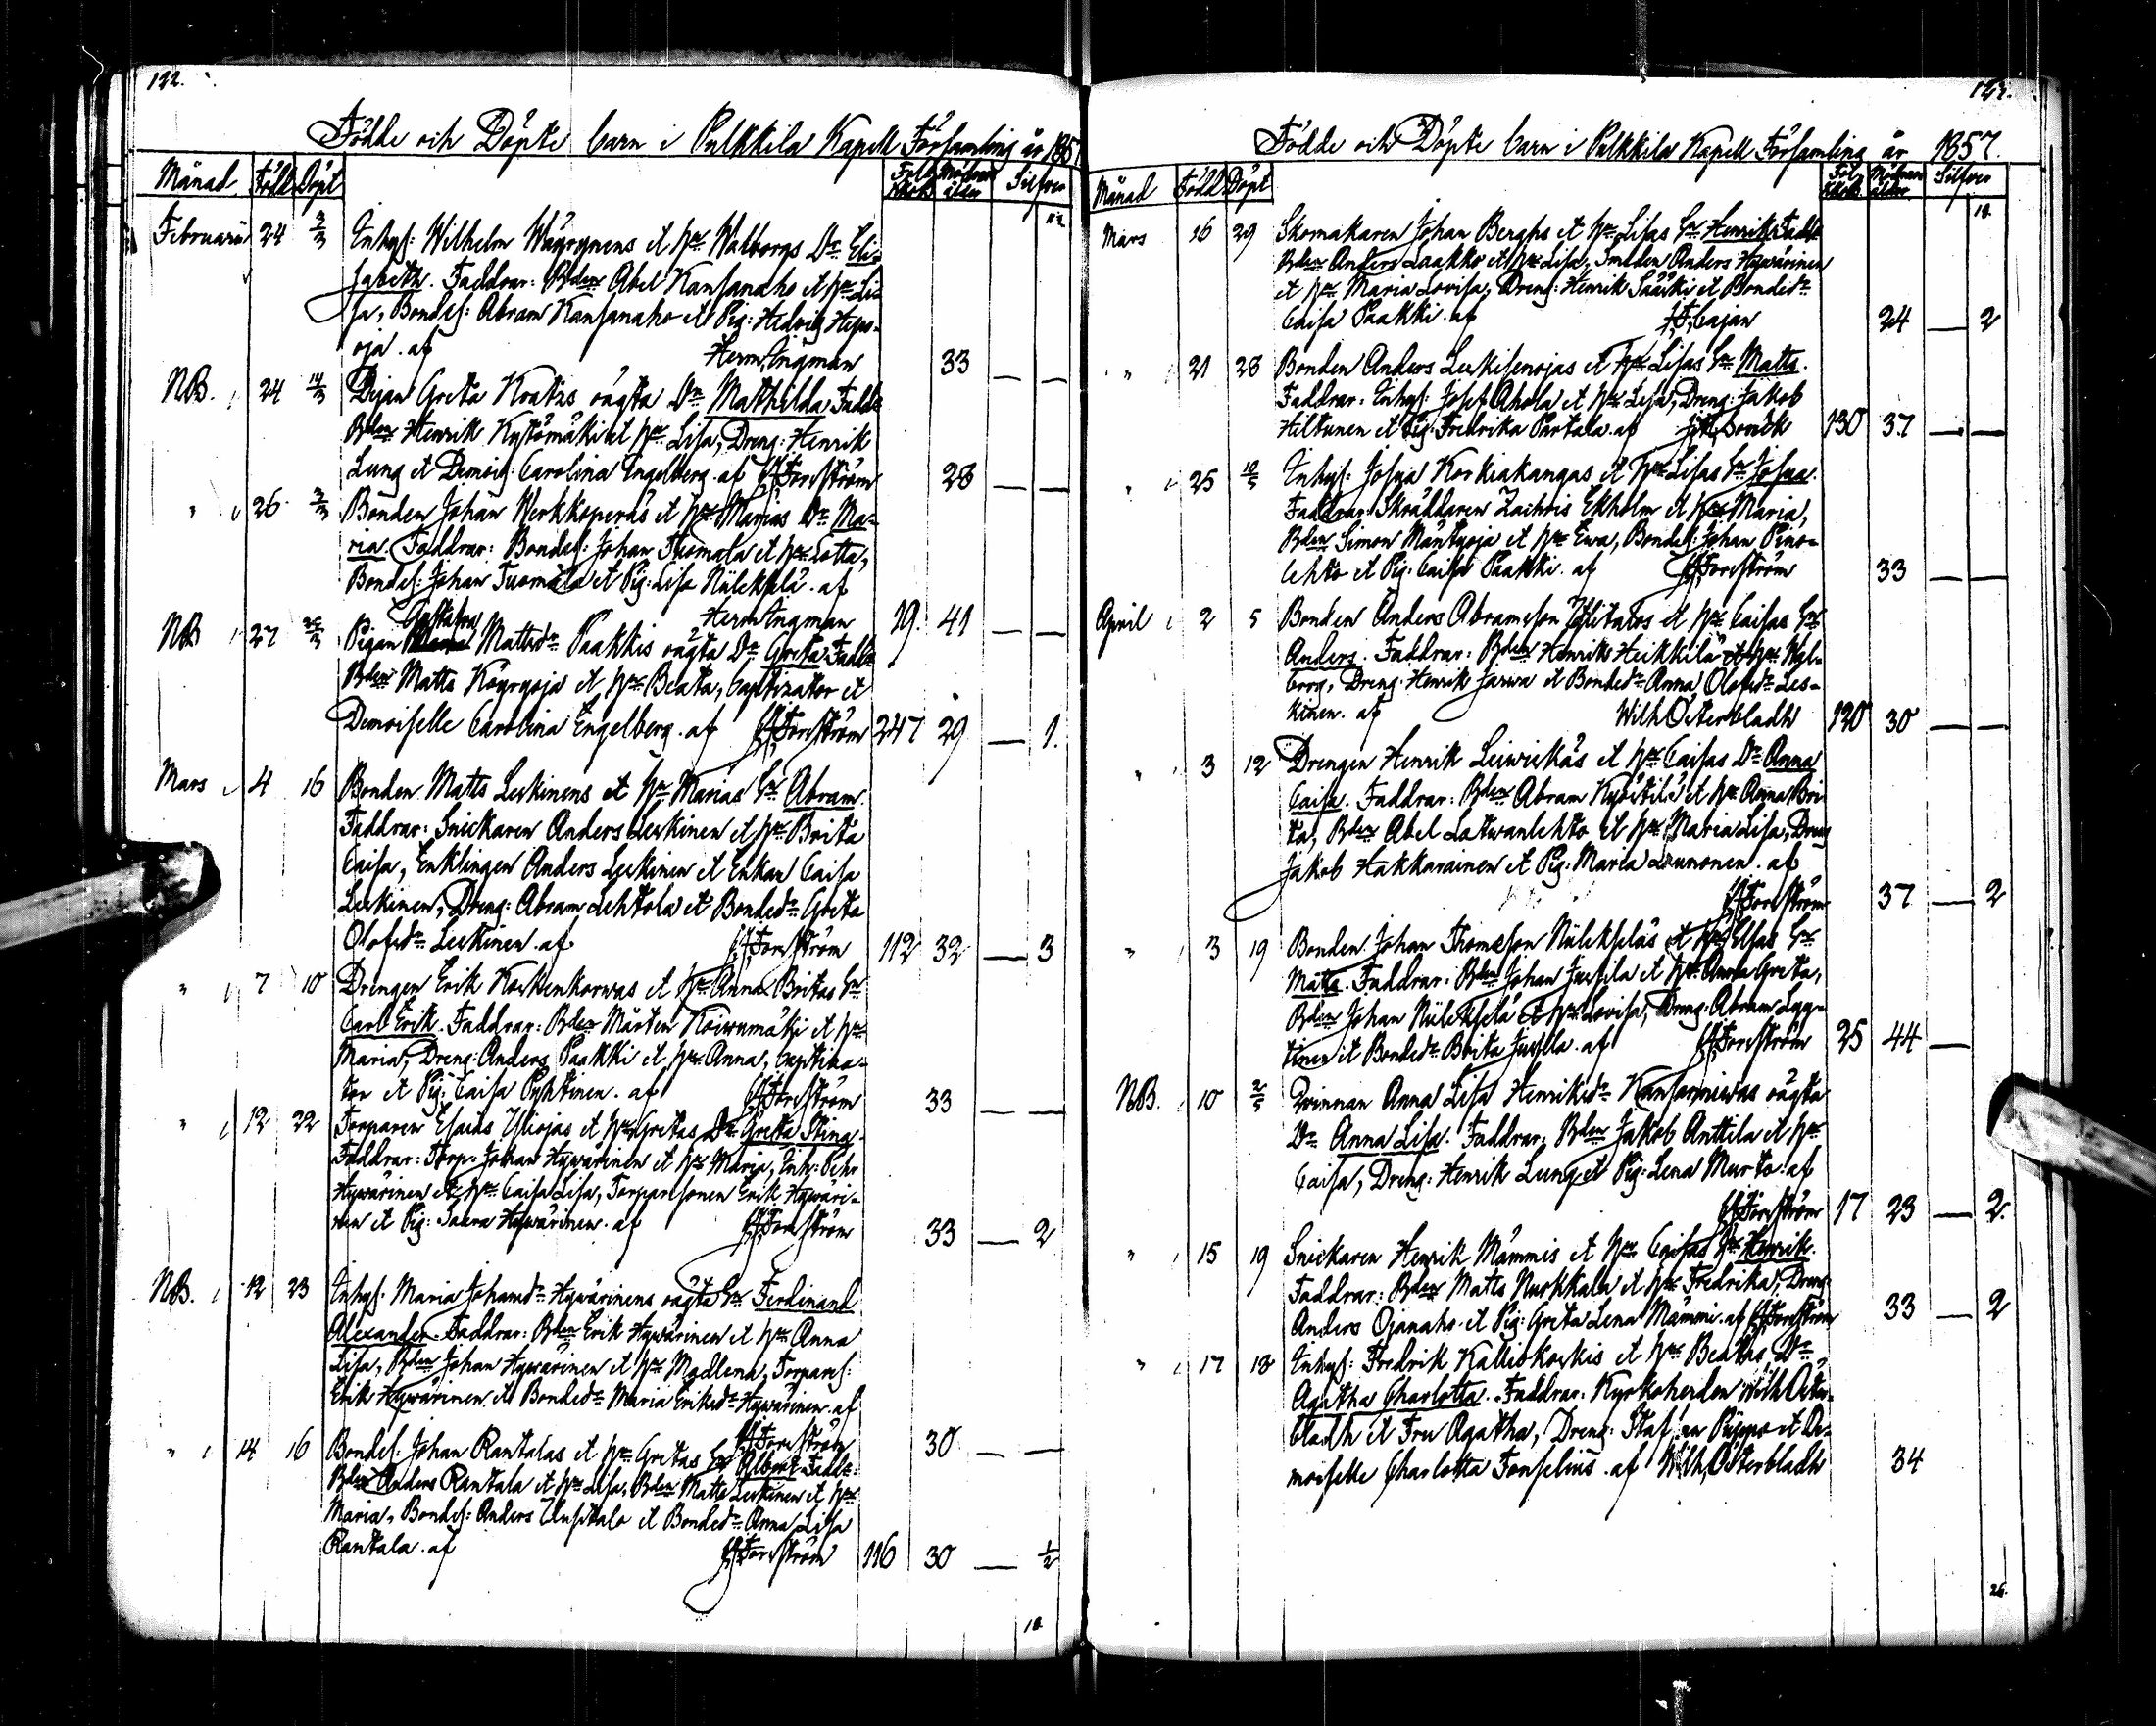 122.
Födde och Döpte barn i Pulkkila Kapell Församling år 1857
Månad Född Döpt Mödrars ålder Silfver
Februarii 24 3/3 Inhys: Wilhelm Wäyrynens et hu Walborgs Dr Eli-
sabeth. Faddrar: Bden Abel Kansanaho et hu Li-
sa, Bondes: Abram Kansanaho et Pig: Hedvig
oja. af Herm Ingman 33 — —
NB. 24 14/3 Pigan Greta Kratzs oägta Dr Mathilda Fadd:
Bden Henrik Kyttömäki et hu Lisa, Dreng: Henrik
Lung et Demois: Carolina Engelberg. af Forsström 28 — —
" 26 3/3 Bonden Johan Werkkoperäs et hu Marias Dr Ma-
ria. Faddrar: Bondes: Johan Thomala et hu Lotta,
Bondes: Johan Tuomala et Pig: Lisa Niilekselä. af
Herm Ingman 19. 41 — —
NB 27 Pigan Gustafva Mattsdr Paakkis oägta Dr Greta Fadd:
Bden Matts Köyryoja et hu Beata, Baptizator et
Demoiselle Carolina Engelberg. af Forsström 247 29 — 1.
Mars 4 16 Bonden Matts Leskinens et hu Marias Sn Abram.
Faddrar: Snickaren Anders Leskinen et hu Brita
Caisa, Enklingen Anders Leskinen et Enkan Caisa
Leskinen, Dreng: Abram Lehtola et Bondedr Greta
Olofsdr Leskinen. af Forsström 112 32 — 3
" 7 10 Drengen Erik Koskenkorwas et hu Anna Britas Sn
Carl Erik. Faddrar: Bden Mårten Koiwumäki et hu
Maria, Dreng: Anders Paakki et hu Anna, Baptiza-
tor et Pig: Caisa Pyhtinen. af Forsström 33 — —
" 12 22 Torparen Esaias Yliojas et hu Gretas Dr Greta Stina.
Faddrar: Torp: Johan Hywärinen et hu Maria, Inh: Pehr
Hywärinen et hu Caisa Lisa, Torparesonen Erik Hywäri-
nen et Pig: Saara Hywärinen. af Forsström 33 — 2
NB. 12 23 Inhys: Maria Johansdr Hywärinens oägta Sn Ferdinand
Alexander. Faddrar: Bden Erik Hywärinen et hu Anna
Lisa, Bden Johan Hywärinen et hu Madlena, Torpares:
Erik Hywärinen et Bondedr Maria Eriksdr Hywärinen. af
Forsström 30 — —
" 14 16 Bondes: Johan Rantalas et hu Gretas Sn Albert Fadd:
Bden Anders Rantala et hu Lisa, Bden Matts Leskinen et hu
Maria, Bondes: Anders Uusitalo et Bondedr Anna Lisa
Rantala. af Forsström 116 30 — 1/2
18
123.
Födde och Döpte barn i Pulkkila Kapell Församling år 1857.
Månad Född Döpt Mödrars ålder Silfver
18.
Mars 16 29 Skomakaren Johan Berghs et hu Lisas Sn Henrik Fadd:
Bden Anders Laakko et hu Lisa, Smeden Anders Hywärinen
et hu Maria Lovisa, Dreng: Henrik Sääski et Bondedr
Caisa Paakki. af Cajan 24 — 2
" 21 28 Bonden Anders Leskisenojas et hu Lisas Sn Matts.
Faddrar: Inhys: Josef Ahola et hu Lisa, Dreng: Jakob
Hiltunen et Pig: Fredrika Partala. af 130 37 — —
" 25 10/5 Inhys: Josua Korkiakangas et hu Lisas Sn Josua.
Faddrar: Skräddaren Zachris Ekholm et hu Maria,
Bden Simon Mäntyoja et hu Ewa, Bondes: Johan Pino-
lehto et Pig: Caisa Paakki. af Forsström 33 — —
April 2 5 Bonden Anders Abramsson Ylitalos et hu Caisas Sn
Anders. Faddrar: Bden Henrik Heikkilä et hu Wal-
borg, Dreng: Henrik Jarwa et Bondedr Anna Olofsdr Les-
kinen. af Wilh Österbladh 120 30 — —
" 3 12 Drengen Henrik Leiwiskäs et hu Caisas Dr Anna
Caisa. Faddrar: Bden Abram Kyöstilä et hu Anna Bri-
ta, Bden Abel Latwanlehto et hu Maria Lisa, Dreng
Jakob Hakkarainen et Pig: Maria Laumonen. af
Forsström 37 — 2
" 3 19 Bonden Johan Thomsson Niilekseläs et hu Elsas Sn
Matts. Faddrar: Bden Johan Jussila et hu Anna Greta,
Bden Johan Niilekselä et hu Lovisa, Dreng: Abram Lyy-
tinen et Bondedr Brita Jussila. af Forsström 25 44 —
NB. 10 2/5 Qvinnan Anna Lisa Henriksdr Kansanniwas oägta
Dr Anna Lisa. Faddrar: Bden Jakob Anttila et hu
Caisa, Dreng: Henrik Lung et Pig: Lena Murto. af
Forsström 17 23 — 2.
" 15 19 Snickaren Henrik Mämmis et hu Caisas Sn Henrik.
Faddrar: Bden Matts Nurkkala et hu Fredrika, Dreng:
Anders Ojanaho et Pig: Greta Lena Mämmi. af Forsström 33 — 2
" 17 18 Inhys: Fredrik Kalliokoskis et hu Beatas Dr
Agatha Charlotta. Faddrar: Kyrkoherden Wilh Öster-
bladh et Fru Agatha, Dreng: Staffan Piippo et De-
moiselle Charlotta Forselius. af Wilh Österbladh 34
26.